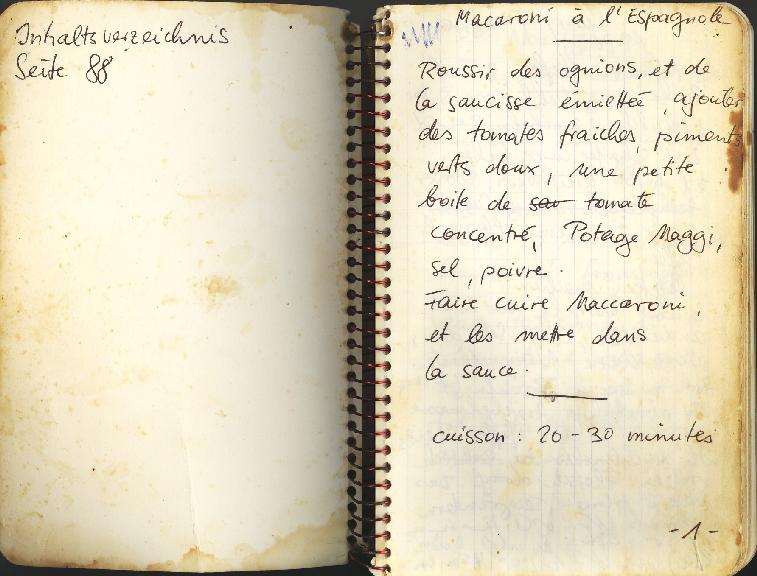 Inhaltsverzeichnis
Seite 88
Macaroni à l'Espagnole
Roussir des ognions, et de
la saucisse émiettée, ajouter
des tomates fraiches, piments
verts doux, une petite
boite de sau tomate
concentré, Potage Maggi,
sel, poivre.
Faire cuire Maccaroni,
et les mettre dans
la sauce.
cuisson : 20 - 30 minutes
- 1 -